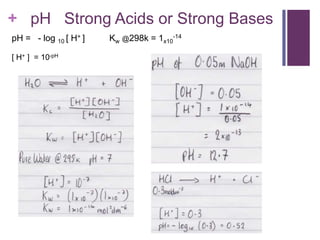 + pH Strong Acids or Strong Bases
pH = - log 10 [ H+ ] Kw @298k = 1x10-14
[ H+ ] = 10-pH
H2O ⇌ H+ + OH-
Kc = [H+][OH-]
[H2O]
Kw = [H+][OH-]
Pure Water @ 298K pH = 7
[H+] = 10-7
Kw = (1x10-7)(1x10-7)
Kw = 1x10-14 mol2dm-6
pH of 0.05m NaOH
[OH-] = 0.05
[H+] = 1x10-14
0.05
= 2x10-13
pH = 12.7
HCl → H+ + Cl-
0.3moldm-3
[H+] = 0.3
pH = - log10 (0.3) = 0.52